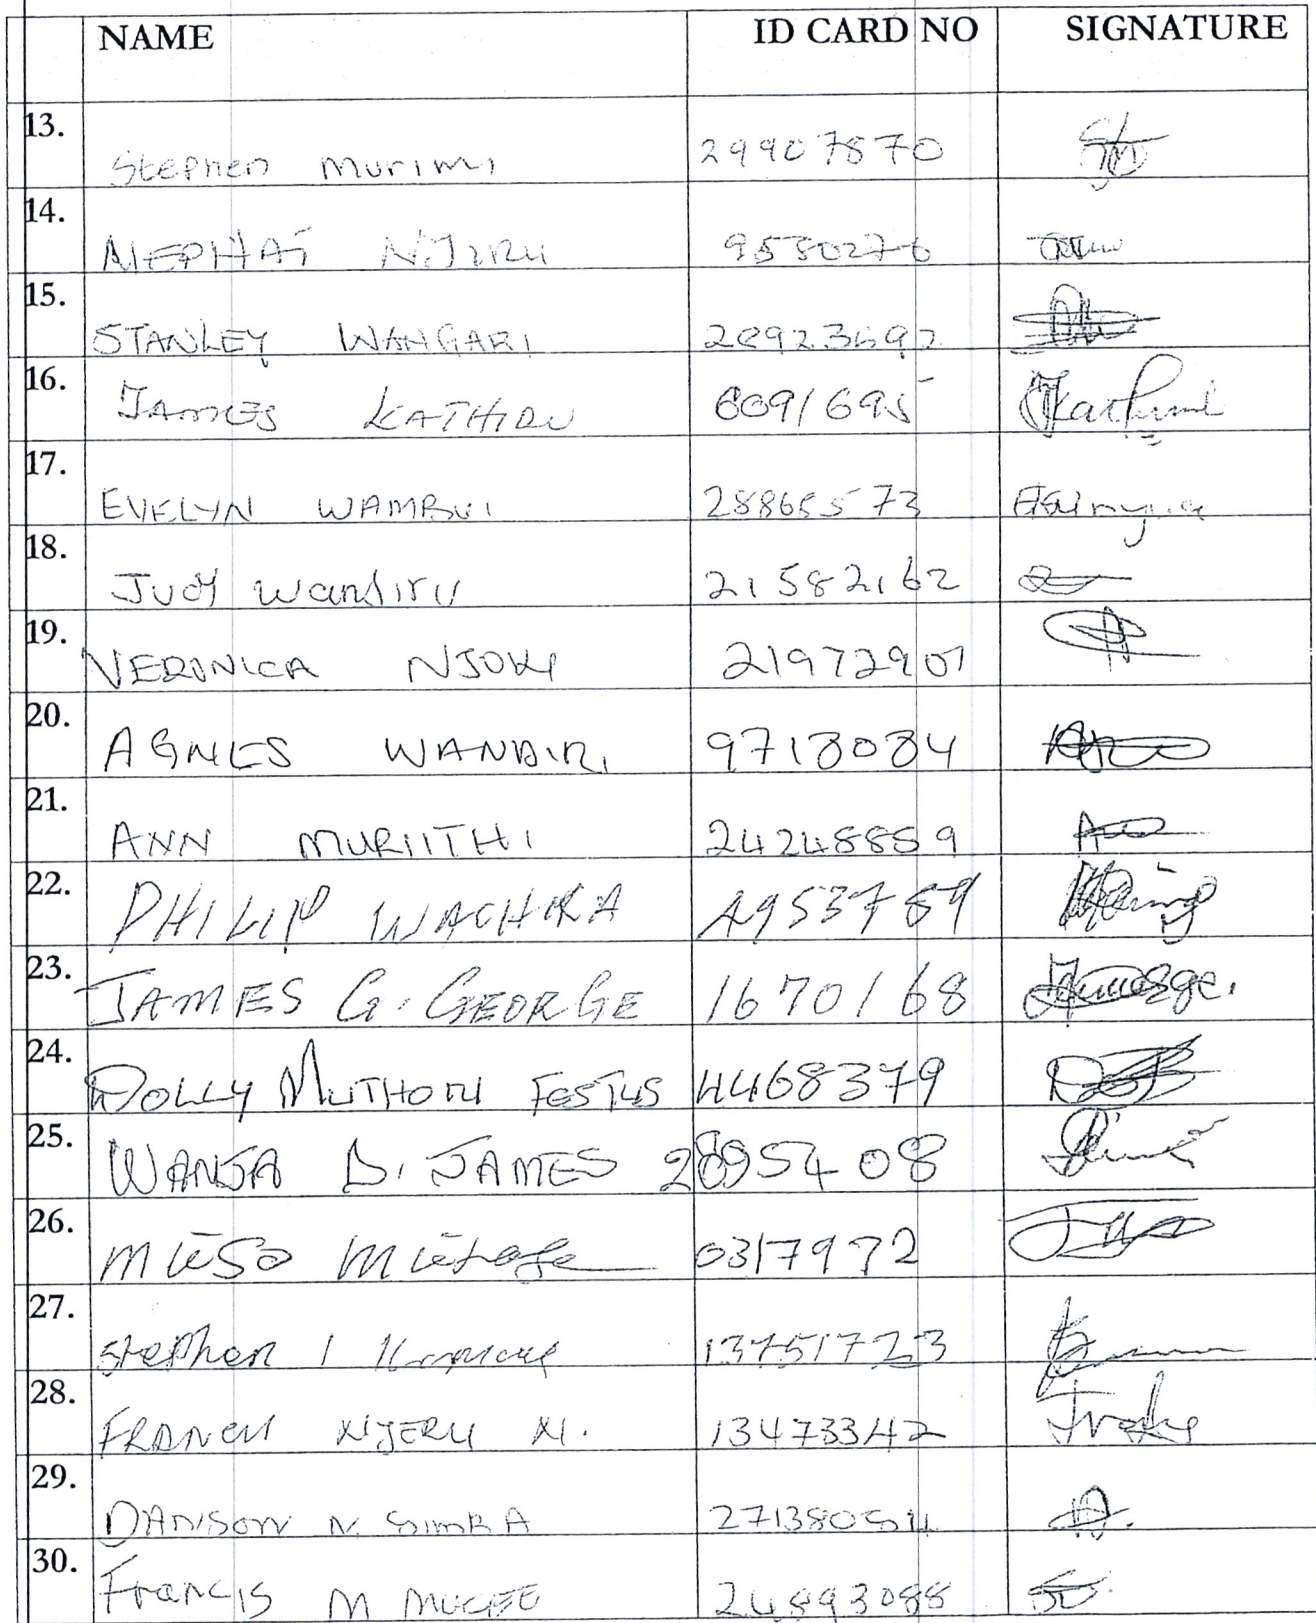 NAME ID CARD NO SIGNATURE
13. Stephen Murimi 29907870
14. NEPHAT NJIRU 9530276
15. STANLEY WANGARI 28923692
16. JAMES KATHIRU 6091695
17. EVELYN WAMBUI 28865573
18. Judy Wanjiru 21582162
19. VERONICA NJOKI 21972901
20. AGNES WANDIRI 9713034
21. ANN MURIITHI 24248859
22. PHILIP WACHIRA
23. JAMES G. GEORGE 1670168
24. DOLLY MUTHONI FESTUS 4468379
25. WANJA D. JAMES
26. 0317972
27. Stephen I 13751723
28. NJERU N. 13473342
29. DANISON N. SIMBA
30. Francis M 24893088